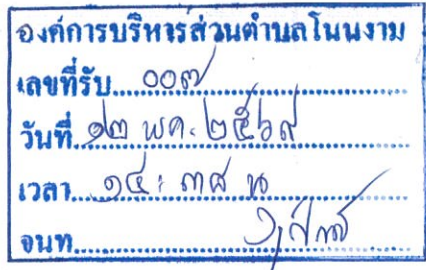 องค์การบริหารส่วนตำบลโนนงาม
เลขที่รับ....๐๐๗
วันที่....๑๓ พค. ๒๕๖๙
เวลา....๑๔: ๓๘ น
จนท.